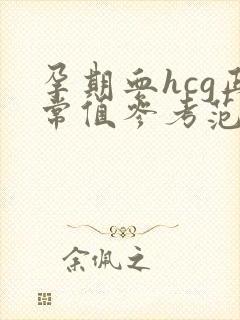 孕期血hcg正
常值参考范
余佩之